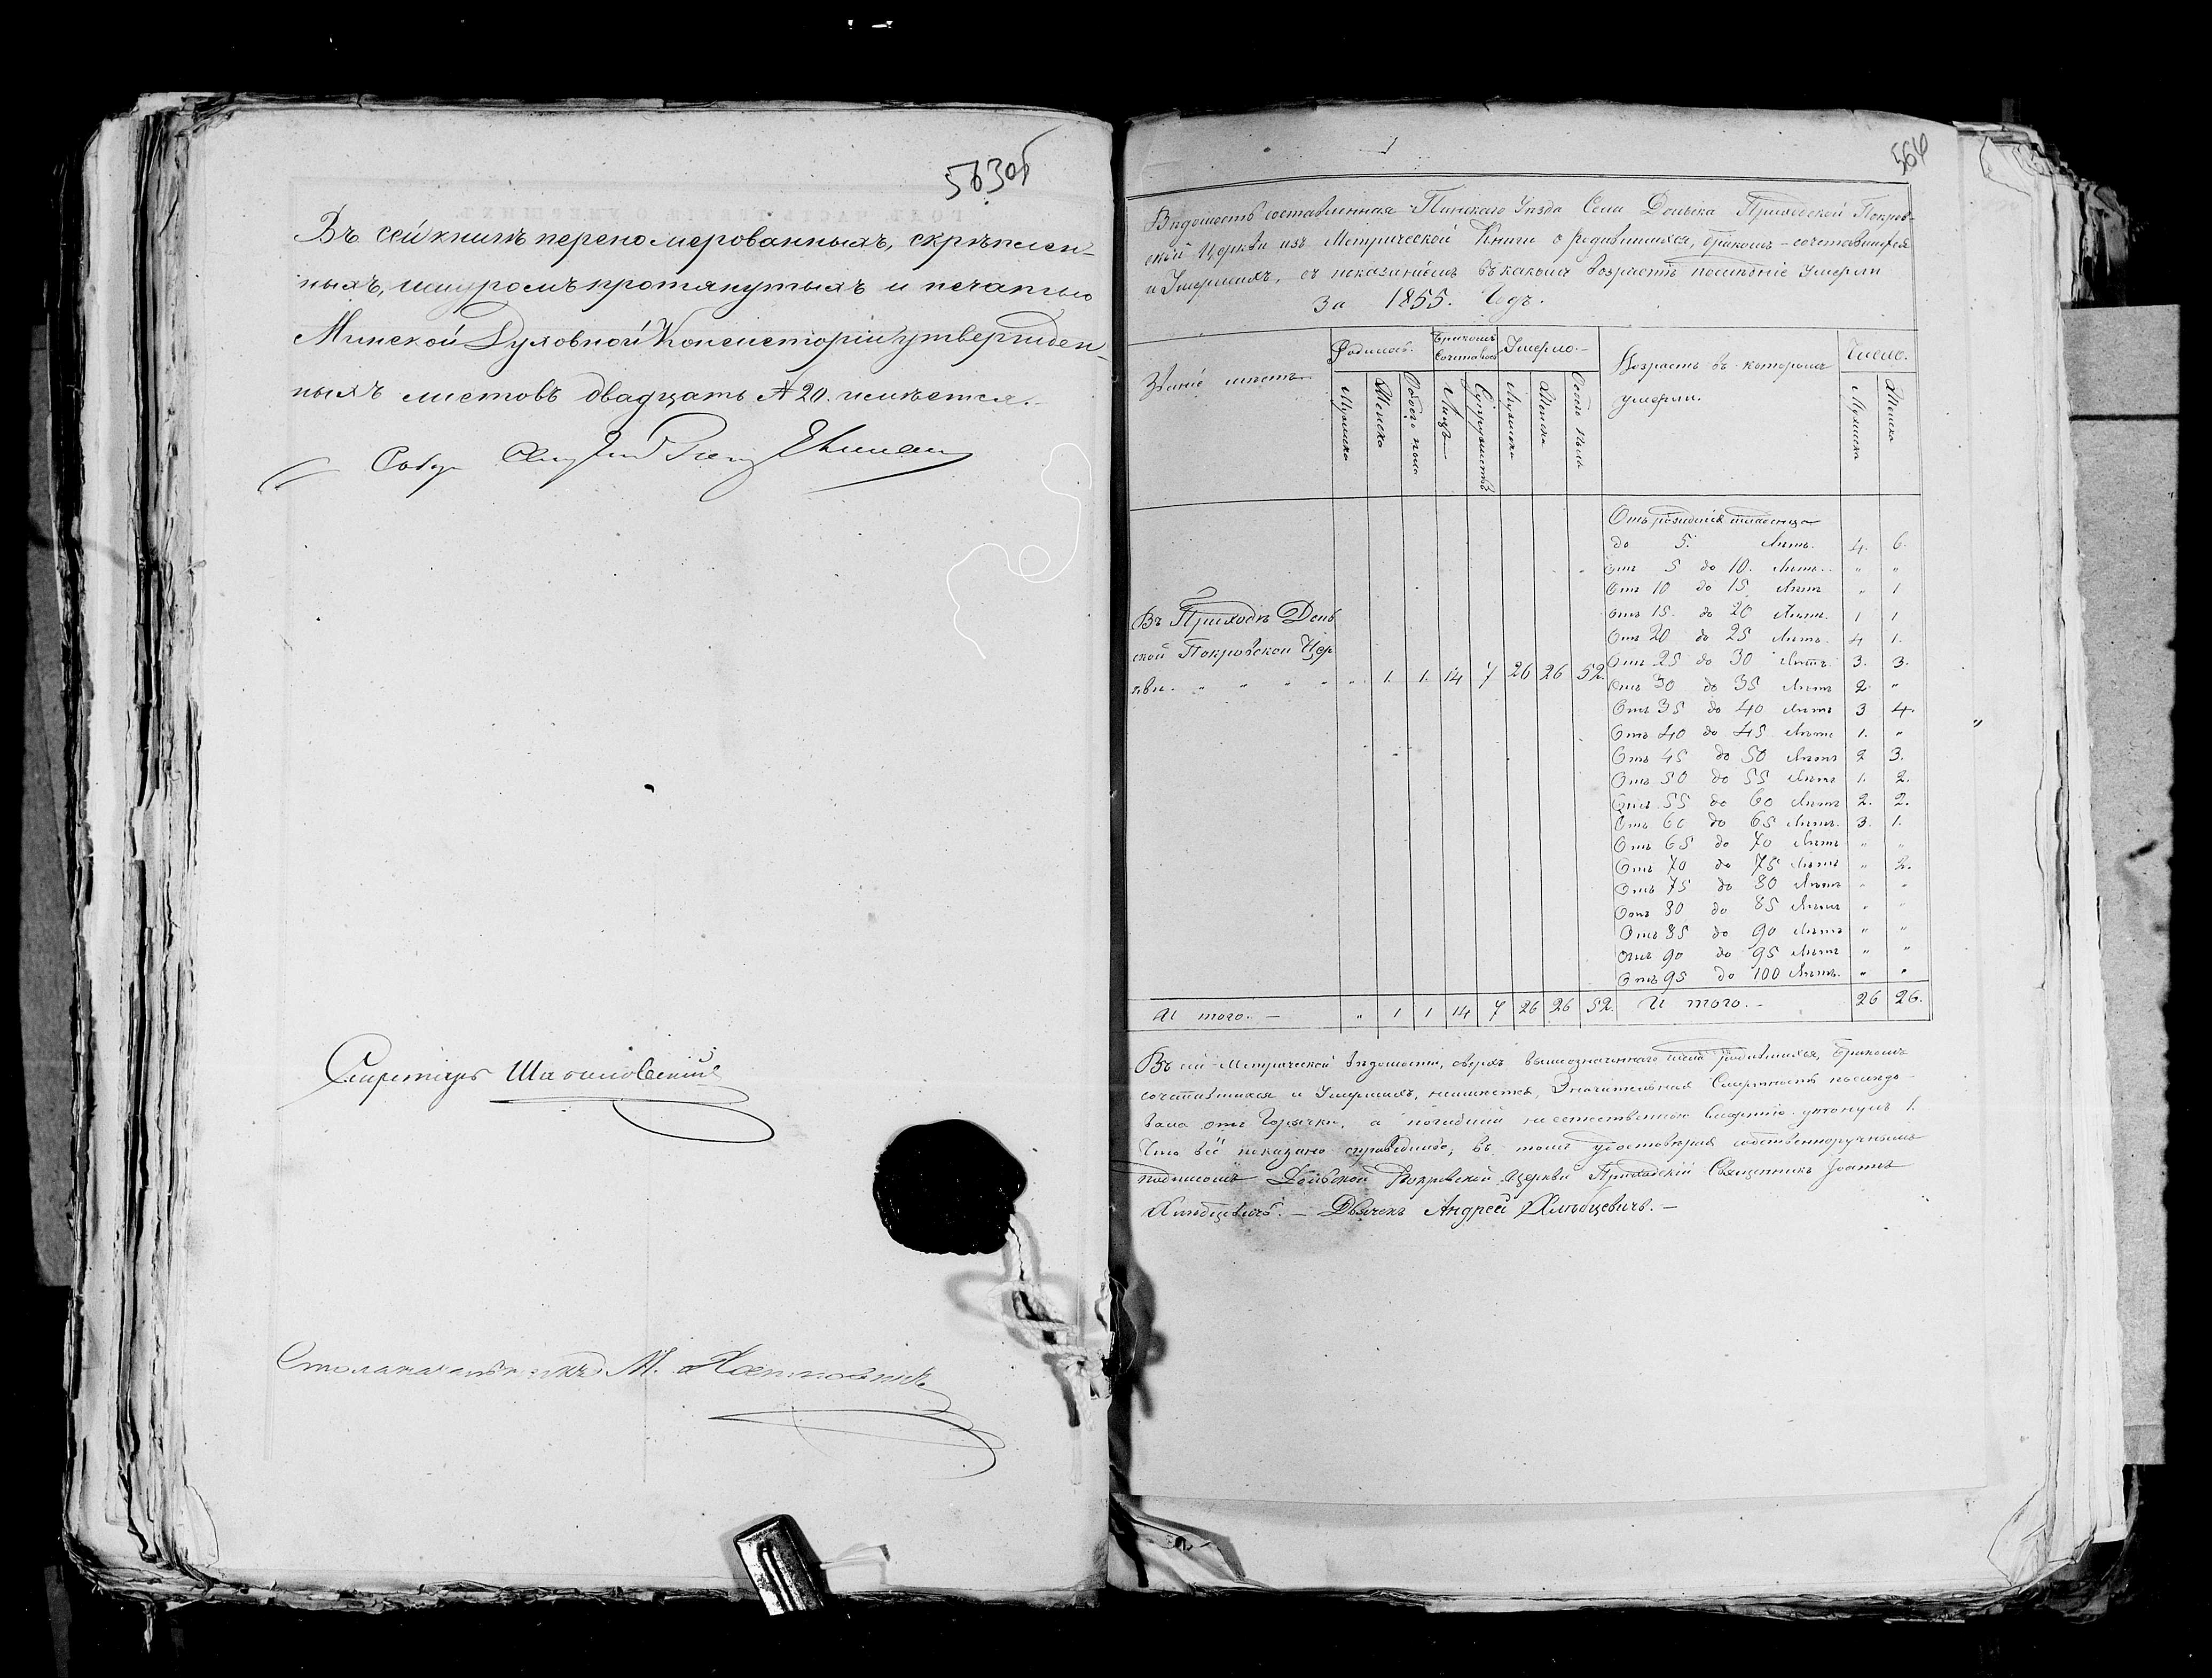 563об
Въ сей книгѣ переномерованныхъ, скрѣплен-
ныхъ, шнуромъ протянутыхъ и печатью
Минской Духовной Консисторіи утвержден-
ныхъ листовъ двадцать № 20. имѣется.
Секретарь
Столоначальникъ М.
564
Вѣдомость составленная Пинскаго Уѣзда Села Приходской Покров-
ской Церкви изъ Метрической Книги о родившихся, бракомъ-сочетавшихся
и Умершихъ, съ показаніемъ въ какомъ возрастѣ послѣдніе умерли
За 1855. Годъ.
Званіе мѣстъ
Родилось.
Бракомъ Сочеталось
Умерло.
Возрастъ въ которомъ умерли.
Число.
Мужеска
Женска
Обоего пола
Лицъ
Супружествъ
Мужеска
Женска
Обоего пола
Мужеска
Женска
Отъ рожденія младенца
до 5. Лѣтъ. 4. 6.
Отъ 5 до 10. Лѣтъ. " "
Отъ 10 до 15 Лѣтъ " 1
Отъ 15 до 20 Лѣтъ. 1 1
Отъ 20 до 25 Лѣтъ. 4 1.
Отъ 25 до 30 Лѣтъ. 3. 3.
Отъ 30 до 35 Лѣтъ 2. "
Отъ 35 до 40 Лѣтъ 3 4.
Отъ 40 до 45 Лѣтъ 1. "
Отъ 45 до 50 Лѣтъ 2 3.
Отъ 50 до 55 Лѣтъ 1. 2.
Отъ 55 до 60 Лѣтъ 2. 2.
Отъ 60 до 65 Лѣтъ. 3. 1.
Отъ 65 до 70 Лѣтъ " "
Отъ 70 до 75 Лѣтъ " 2.
Отъ 75 до 80 Лѣтъ " "
Отъ 80 до 85 Лѣтъ " "
Отъ 85 до 90 Лѣтъ " "
Отъ 90 до 95 Лѣтъ " "
Отъ 95 до 100 Лѣтъ. " "
Въ Приходѣ
ской Покровской Цер
кви. " " " " " 1. 1. 14 7 26 26 52.
И того. — " 1 1 14 7 26 26 52. И того. - 26 26.
Въ сей Метрической вѣдомости, сверхъ вышеозначеннаго числа родившихся, бракомъ
сочетавшихся и Умершихъ, неимѣется, Значительная Смертность послѣдо-
вала отъ Горячки, а погибшій неестественною Смертію утонулъ 1.
Что всё показано справедливо, въ томъ удостовѣряя собственноручнымъ
подписомъ Покровской Церкви Приходскій Священникъ Іоаннъ
Хлѣбцевичъ. — Дьячекъ Андрей Хлѣбцевичъ. —